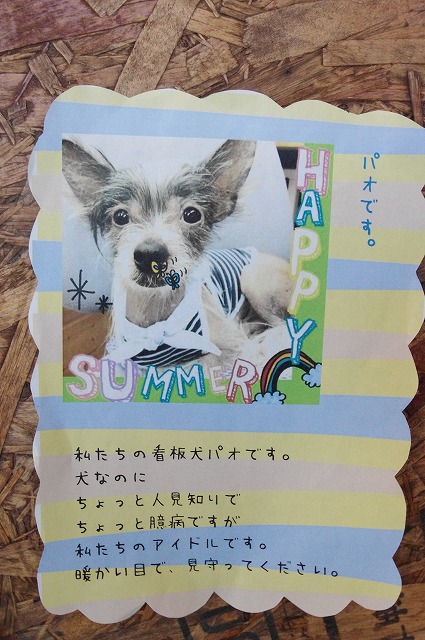 パオです。
HAPPY
SUMMER
私たちの看板犬パオです。
犬なのに
ちょっと人見知りで
ちょっと臆病ですが
私たちのアイドルです。
暖かい目で、見守ってください。